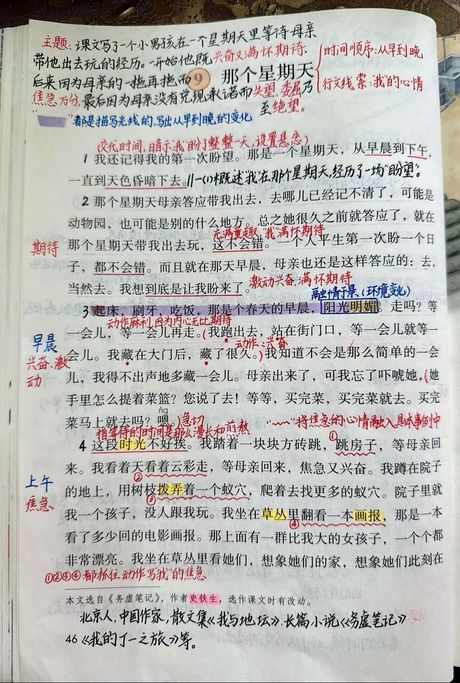 主题：课文写了一个小男孩在一个星期天里等待母亲
带他出去玩的经历。一开始他既兴奋又满怀期待
时间顺序：从早到晚
后来因为母亲的一拖再拖而
9 那个星期天
行文线索：我的心情
焦急万分，最后因为母亲没有兑现承诺而失望、委屈乃
至绝望。
都是描写光线的，写出从早到晚的变化
(交代时间，暗示“我”盼了整整一天，设置悬念)
1 我还记得我的第一次盼望。那是一个星期天，从早晨到下午，
一直到天色昏暗下去。//一(1)概述“我”在那个星期天经历了一场“盼望”。
2 那个星期天母亲答应带我出去，去哪儿已经记不清了，可能是
动物园，也可能是别的什么地方。总之她很久之前就答应了，就在
充满童趣，“我”满怀期待
期待
那个星期天带我出去玩，这不会错。一个人平生第一次盼一个日
子，都不会错。而且就在那天早晨，母亲也还是这样答应的：去，
当然去。我想到底是让我盼来了。
激动兴奋，满怀期待
融情于景(环境变化)
3 起床，刷牙，吃饭，那是个春天的早晨，阳光明媚。走吗？等
动作麻利，因为内心无比期待
早晨
兴奋、激动
一会儿，等一会儿再走。(我跑出去，站在街门口，等一会儿就等一
动作、兴奋
会儿。我藏在大门后，藏了很久。)我知道不会是那么简单的一会
儿，我得不出声地多藏一会儿。母亲出来了，可我忘了吓唬她，(她
手里怎么提着菜篮？您说了去！等等，买完菜，买完菜就去。买完
菜马上就去吗？嗯。)急切
ńg
指等待的时间是那么漫长和煎熬
“﹏﹏”将焦急的心情融入具体事例中
4 这段时光不好挨。我踏着一块块方砖跳，跳房子，等母亲回
①
来。我看着天看着云彩走，等母亲回来，焦急又兴奋。我蹲在院子
②
上午
焦急
的地上，用树枝拨弄着一个蚁穴，爬着去找更多的蚁穴。院子里就
③
我一个孩子，没人跟我玩。我坐在草丛里翻看一本画报，那是一本
④
看了多少回的电影画报。那上面有一群比我大的女孩子，一个个都
非常漂亮。我坐在草丛里看她们，想象她们的家，想象她们此刻在
①②③④都抓住动作写“我”的焦急
本文选自《务虚笔记》，作者史铁生，选作课文时有改动。
北京人，中国作家，散文集《我与地坛》、长篇小说《务虚笔记》
46 《我的丁一之旅》等。